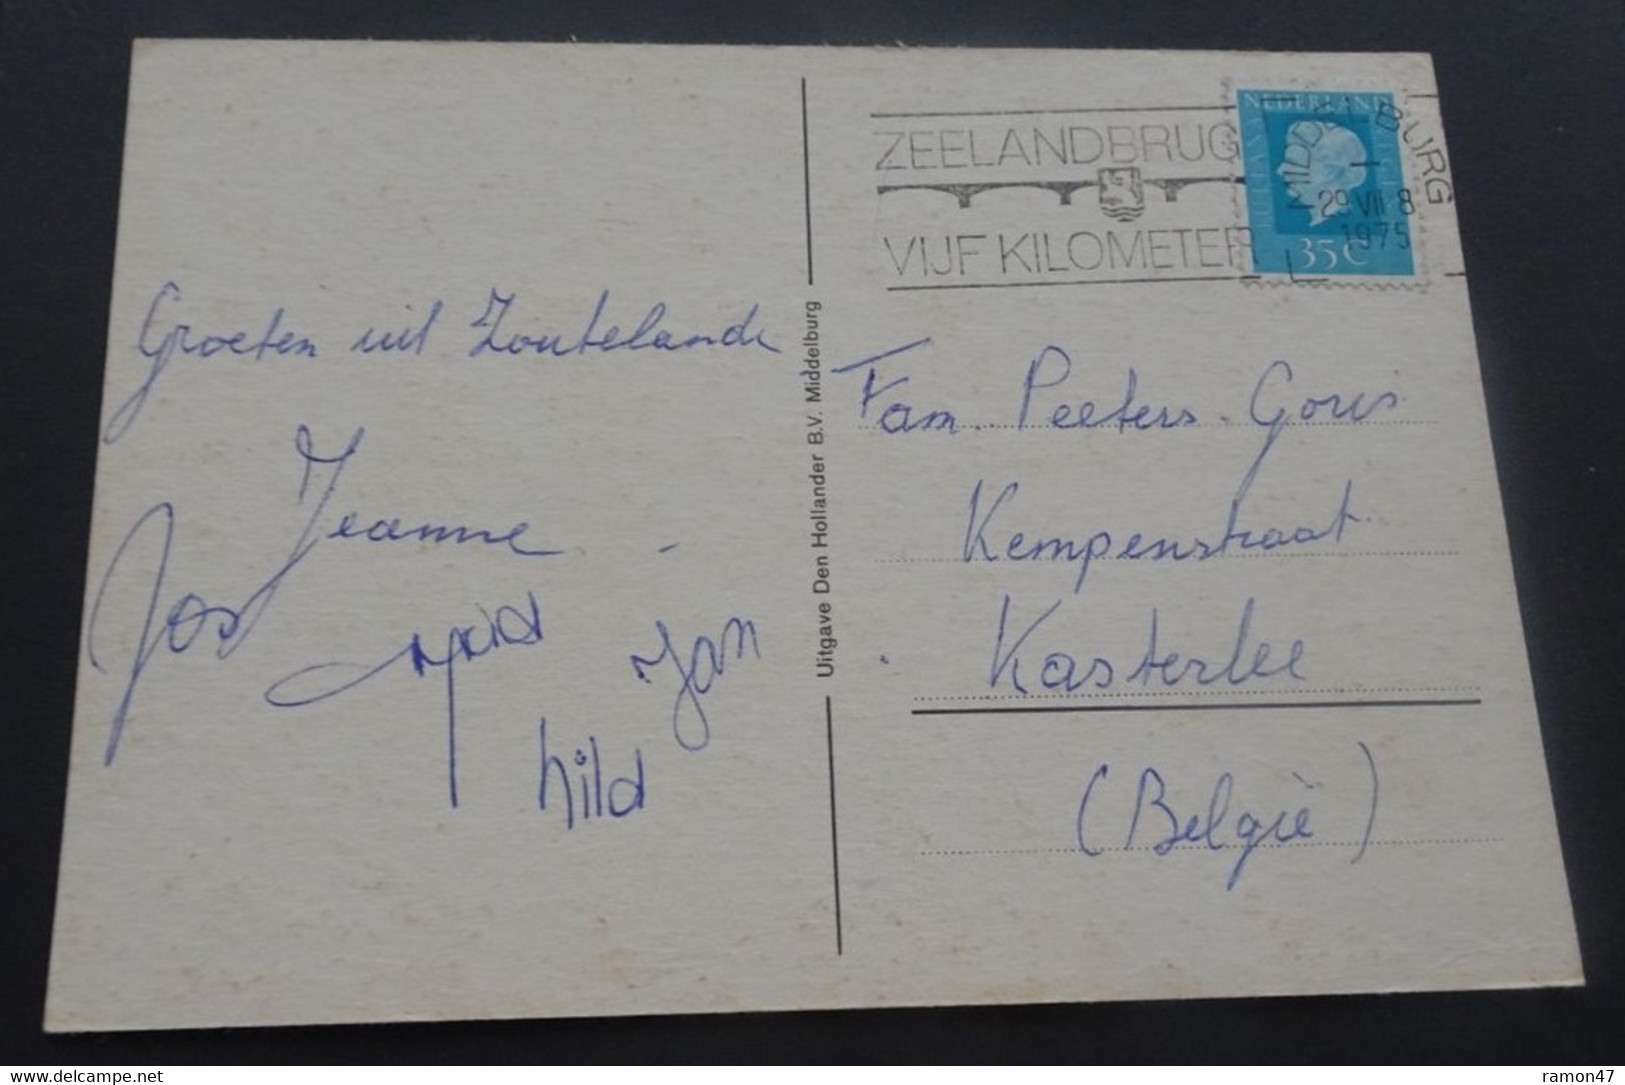 Groeten uit Zoutelande
Jeanne
Jos
Jan
hild
Uitgave Den Hollander B.V. Middelburg
ZEELANDBRUG
VIJF KILOMETER
NEDERLAND
35 C
MIDDELBURG
29 VII 8
1975
Fam. Peeters-Goris
Kempenstraat
Kasterlee
(België)
www.delcampe.net
ramon47